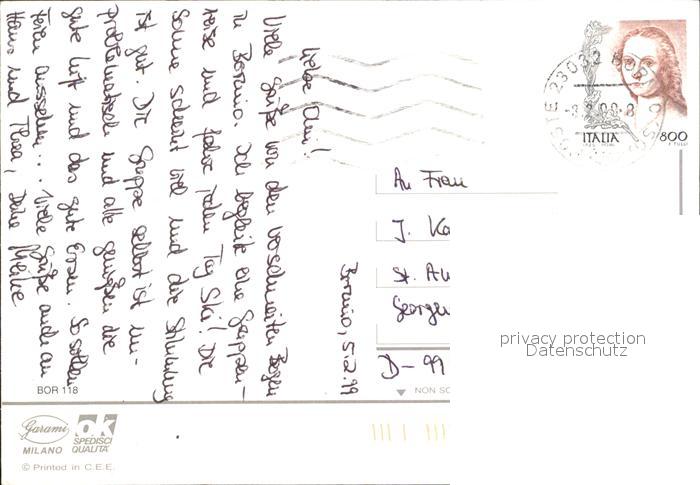 Bormio, 5.2.99
Liebe Omi!
Viele Grüße von den verschneiten Bergen
in Bormio. Ich begleite eine Gruppen-
reise und fahre jeden Tag Ski! Die
Sonne scheint viel und die Stimmung
ist gut. Die Gruppe selbst ist un-
problematisch und alle genießen die
gute Luft und das gute Essen. So sollten
Ferien aussehen... Viele Grüße auch an
Hans und Thea, Deine Meike
An Frau
J. Ka
St. An
Georgen
D-99
800
ITALIA
BOR 118
NON SC
Garami
MILANO
ok
SPEDISCI
QUALITÀ
© Printed in C.E.E.
privacy protection
Datenschutz